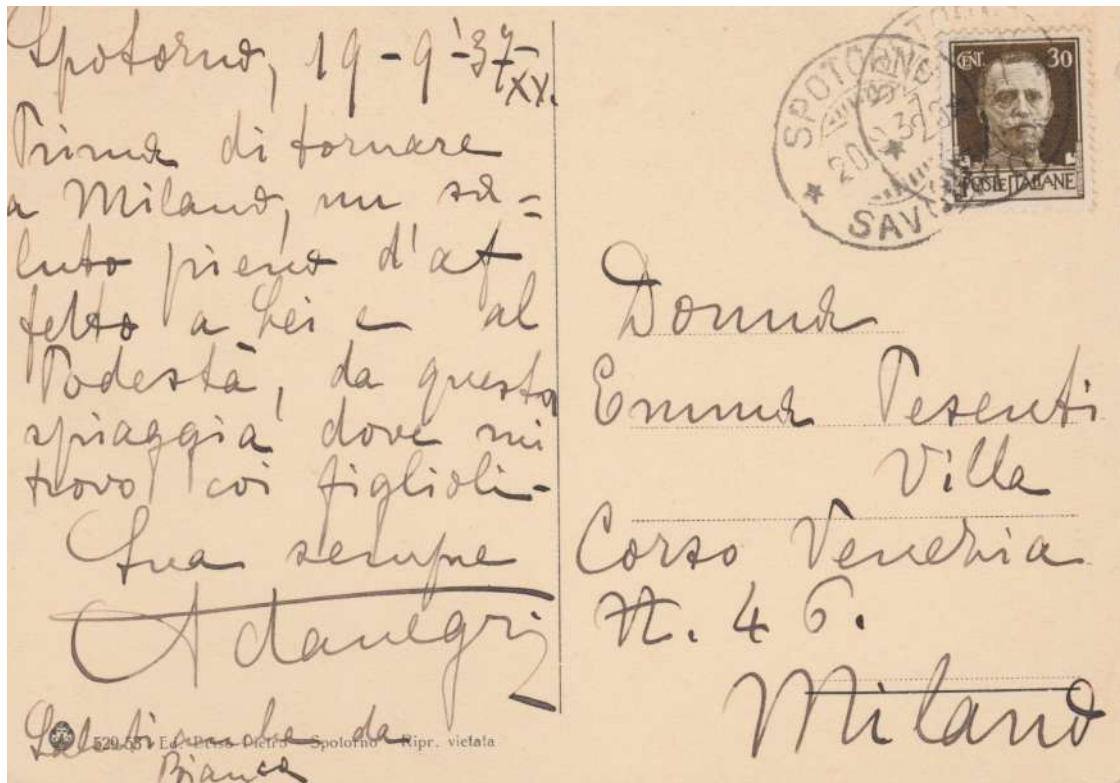 Spotorno, 19-9-'37-
XV.
Prima di tornare
a Milano, un sa=
luto pieno d'af
fetto a Lei e al
Podestà, da questa
spiaggia dove mi
trovo coi figlioli-
Sua sempre
Adanegri
Saluti anche da
Bianca
529-53 Ed. Pietro - Spotorno - Ripr. vietata
SPOTORNO
20.9.37
SAVONA
CENT. 30
POSTE ITALIANE
Donna
Emma Pesenti
Villa
Corso Venezia
N. 46.
Milano